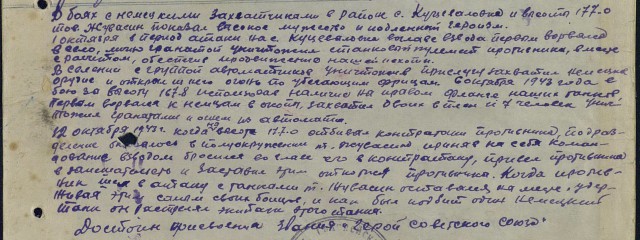 В боях с немецкими захватчиками в районе с. Куцеволовка и высоты 177.0
тов. Жувасин показал высокое мужество и подлинный героизм.
1 октября в период атаки на с. Куцеволовка во главе взвода первым ворвался
в село, лично гранатой уничтожил станковый пулемет противника, вместе
с расчетом, обеспечив продвижение нашей пехоты.
В селении с группой автоматчиков уничтожив прислугу захватил немецкое
орудие и открыл из него огонь по убегающим фрицам. 6 октября 1943 года в
бою за высоту 167.8 используя наличие на правом фланге наших танков
первым ворвался к немцам в окопы, захватил двоих в плен и 7 человек унич-
тожил гранатами и огнем из автомата.
12 октября 1943г. когда на высоте 177.0 отбивал контратаки противника, подраз-
деление оказалось в полуокружении т. Жувасин приняв на себя коман-
дование взводом бросился во главе его в контратаку, привел противника
в замешательство и заставил этим отойти противника. Когда против-
ник шел в атаку с танками т. Жувасин оставался на месте, удер-
живая этим самым своих бойцов, и как был подбит один немецкий
танк он расстрелял экипаж этого танка.
Достоин присвоения звания "Герой Советского Союза"